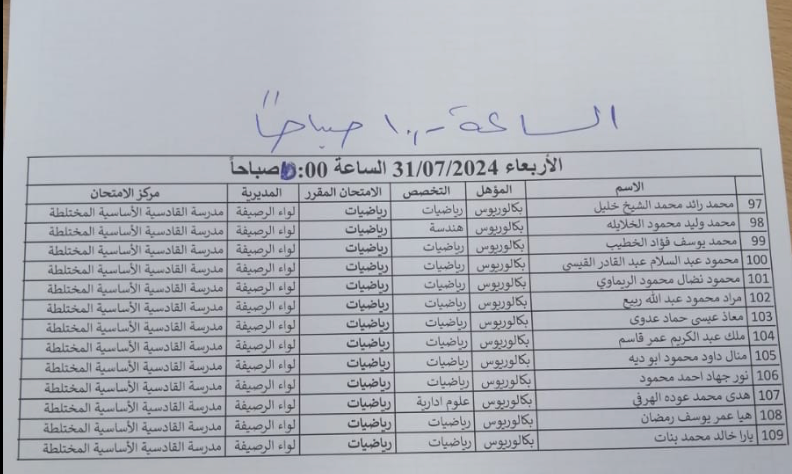 الساعة ١٠,٠٠ صباحاً
الأربعاء 31/07/2024 الساعة :00 صباحاً
الاسم المؤهل التخصص الامتحان المقرر المديرية مركز الامتحان
97 محمد رائد محمد الشيخ خليل بكالوريوس رياضيات رياضيات لواء الرصيفة مدرسة القادسية الأساسية المختلطة
98 محمد وليد محمود الخلايله بكالوريوس هندسة رياضيات لواء الرصيفة مدرسة القادسية الأساسية المختلطة
99 محمد يوسف فؤاد الخطيب بكالوريوس رياضيات رياضيات لواء الرصيفة مدرسة القادسية الأساسية المختلطة
100 محمود عبد السلام عبد القادر القيسي بكالوريوس رياضيات رياضيات لواء الرصيفة مدرسة القادسية الأساسية المختلطة
101 محمود نضال محمود الريماوي بكالوريوس رياضيات رياضيات لواء الرصيفة مدرسة القادسية الأساسية المختلطة
102 مراد محمود عبد الله ربيع بكالوريوس رياضيات رياضيات لواء الرصيفة مدرسة القادسية الأساسية المختلطة
103 معاذ عيسى حماد عدوى بكالوريوس رياضيات رياضيات لواء الرصيفة مدرسة القادسية الأساسية المختلطة
104 ملك عبد الكريم عمر قاسم بكالوريوس رياضيات رياضيات لواء الرصيفة مدرسة القادسية الأساسية المختلطة
105 منال داود محمود ابو ديه بكالوريوس رياضيات رياضيات لواء الرصيفة مدرسة القادسية الأساسية المختلطة
106 نور جهاد احمد محمود بكالوريوس رياضيات رياضيات لواء الرصيفة مدرسة القادسية الأساسية المختلطة
107 هدى محمد عوده الهرفي بكالوريوس علوم ادارية رياضيات لواء الرصيفة مدرسة القادسية الأساسية المختلطة
108 هيا عمر يوسف رمضان بكالوريوس رياضيات رياضيات لواء الرصيفة مدرسة القادسية الأساسية المختلطة
109 يارا خالد محمد بنات بكالوريوس رياضيات رياضيات لواء الرصيفة مدرسة القادسية الأساسية المختلطة